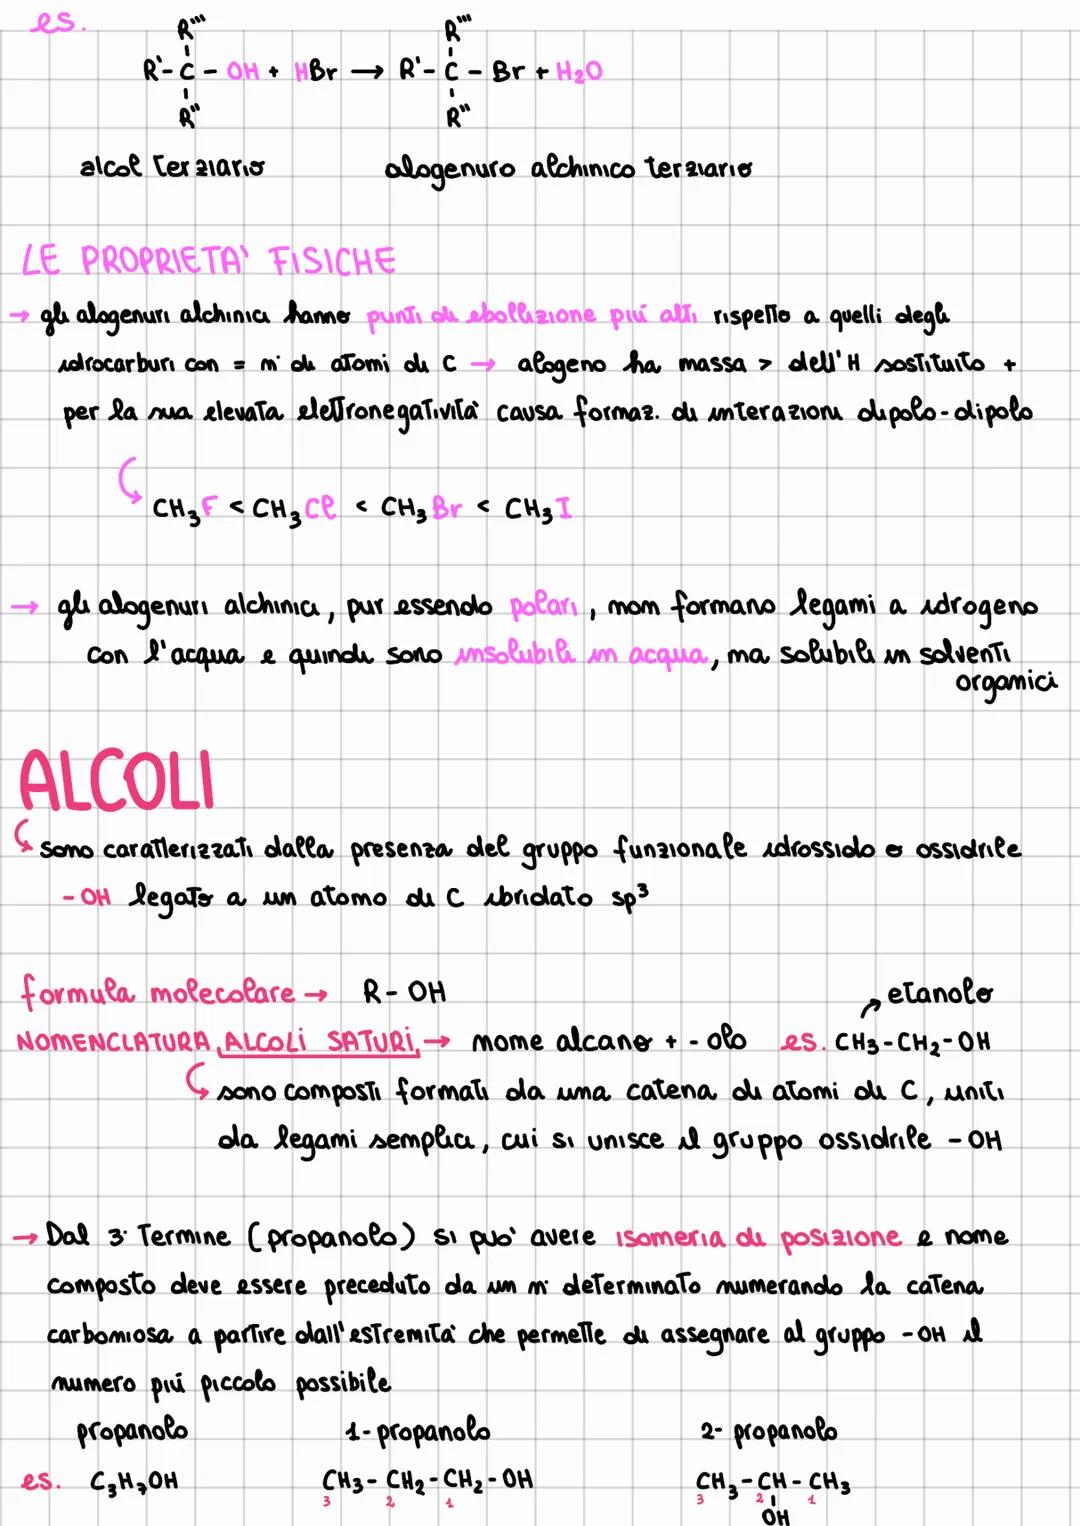 es.
R'''
R'- C - OH + HBr → R'- C - Br + H₂O
R''
alcol terziario
alogenuro alchinico terziario
LE PROPRIETA' FISICHE
→ gli alogenuri alchinici hanno punti di ebollizione più alti rispetto a quelli degli
idrocarburi con = n° di atomi di C → alogeno ha massa > dell'H sostituito +
per la sua elevata elettronegatività causa formaz. di interazioni dipolo-dipolo
CH₃F < CH₃Cl < CH₃Br < CH₃I
→ gli alogenuri alchinici, pur essendo polari, non formano legami a idrogeno
con l'acqua e quindi sono insolubili in acqua, ma solubili in solventi
organici
ALCOLI
sono caratterizzati dalla presenza del gruppo funzionale idrossido o ossidrile
- OH legato a un atomo di C ibridato sp³
formula molecolare → R- OH
etanolo
NOMENCLATURA ALCOLI SATURI → nome alcano + - olo es. CH₃-CH₂-OH
sono composti formati da una catena di atomi di C, uniti
da legami semplici, cui si unisce il gruppo ossidrile - OH
→ Dal 3° Termine (propanolo) si può avere isomeria di posizione e nome
composto deve essere preceduto da un n° determinato numerando la catena
carboniosa a partire dall'estremità che permette di assegnare al gruppo -OH il
numero più piccolo possibile
propanolo 1-propanolo 2- propanolo
es. C₃H₇OH CH₃- CH₂-CH₂- OH CH₃-CH-CH₃
3 2 1 3 2 1
OH